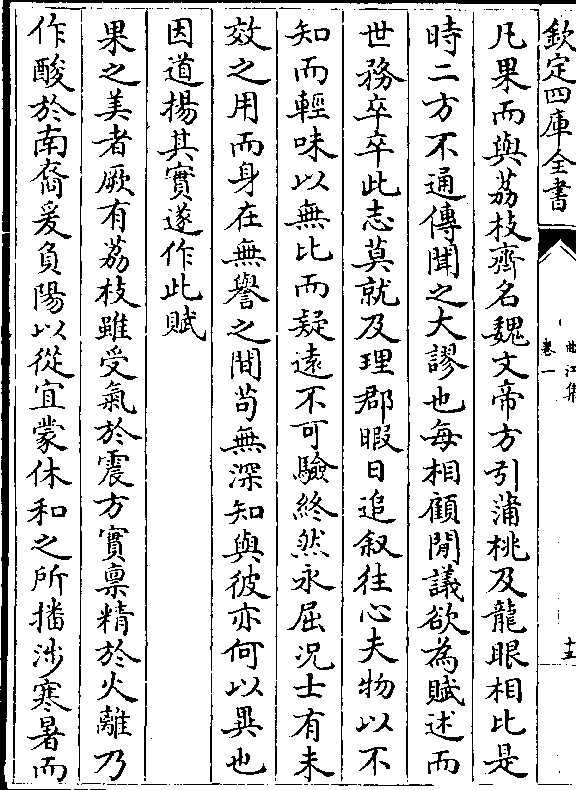 欽定四庫全書
曲江集
卷一
十三
凡果而與荔枝齊名魏文帝方引蒲桃及龍眼相比是
時二方不通傳聞之大謬也每相顧閒議欲為賦述而
世務卒卒此志莫就及理郡暇日追叙往心夫物以不
知而輕味以無比而疑遠不可驗終然永屈況士有未
效之用而身在無譽之間苟無深知與彼亦何以異也
因道揚其實遂作此賦
果之美者厥有荔枝雖受氣於震方實禀精於火離乃
作酸於南裔爰負陽以從宜蒙休和之所播涉寒暑而